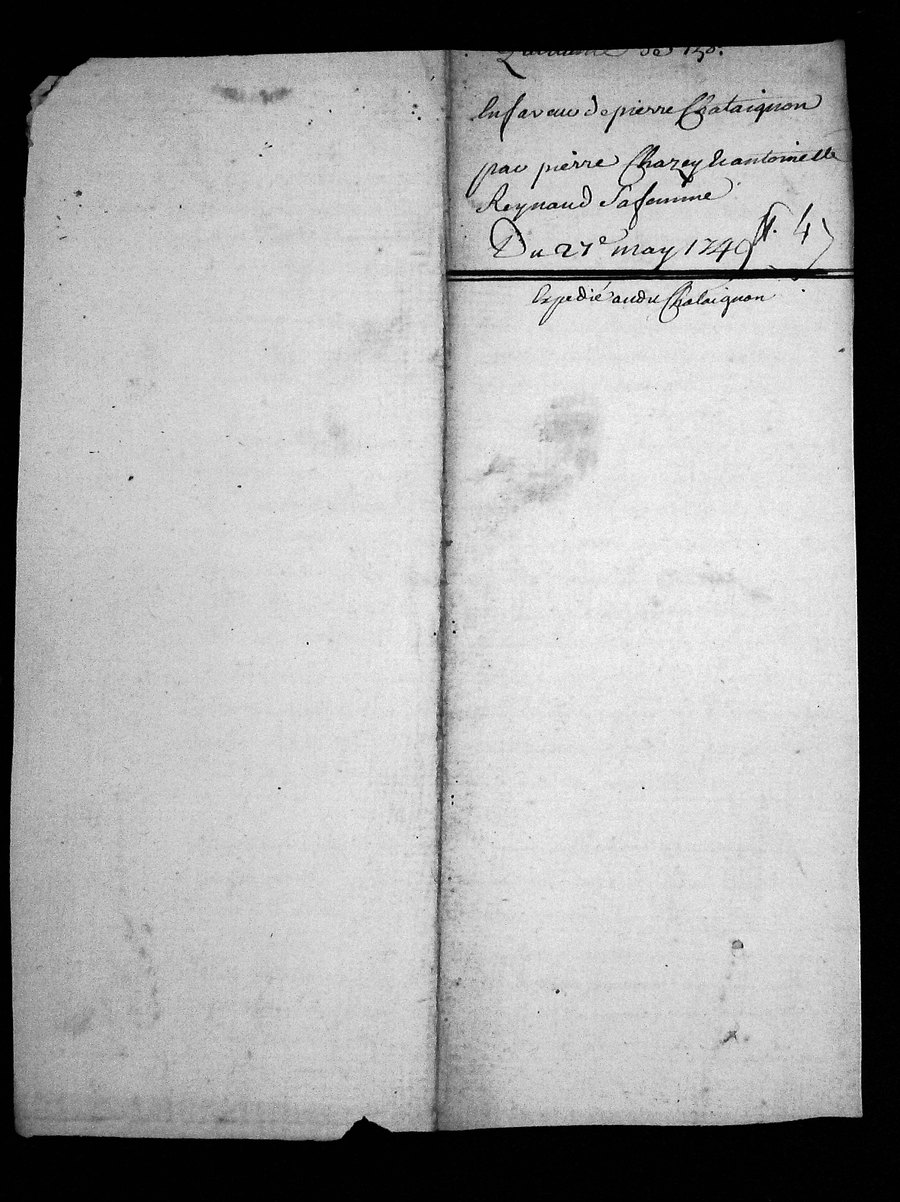 Quittance de 150#
En faveur de pierre Chataignon
par pierre Chazey Et antoinette
Reynaud Sa femme
Du 27e may 1749 47
Expedié audit Chataignon